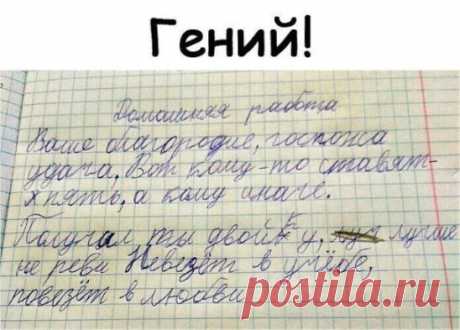 Гений!
Домашняя работа
Ваше благородие, госпожа
удача. Вот кому-то ставят
пять, а кому иначе.
Получал ты двойку, лучше
не реви Невезёт в учёбе,
повезёт в любви
postila.ru